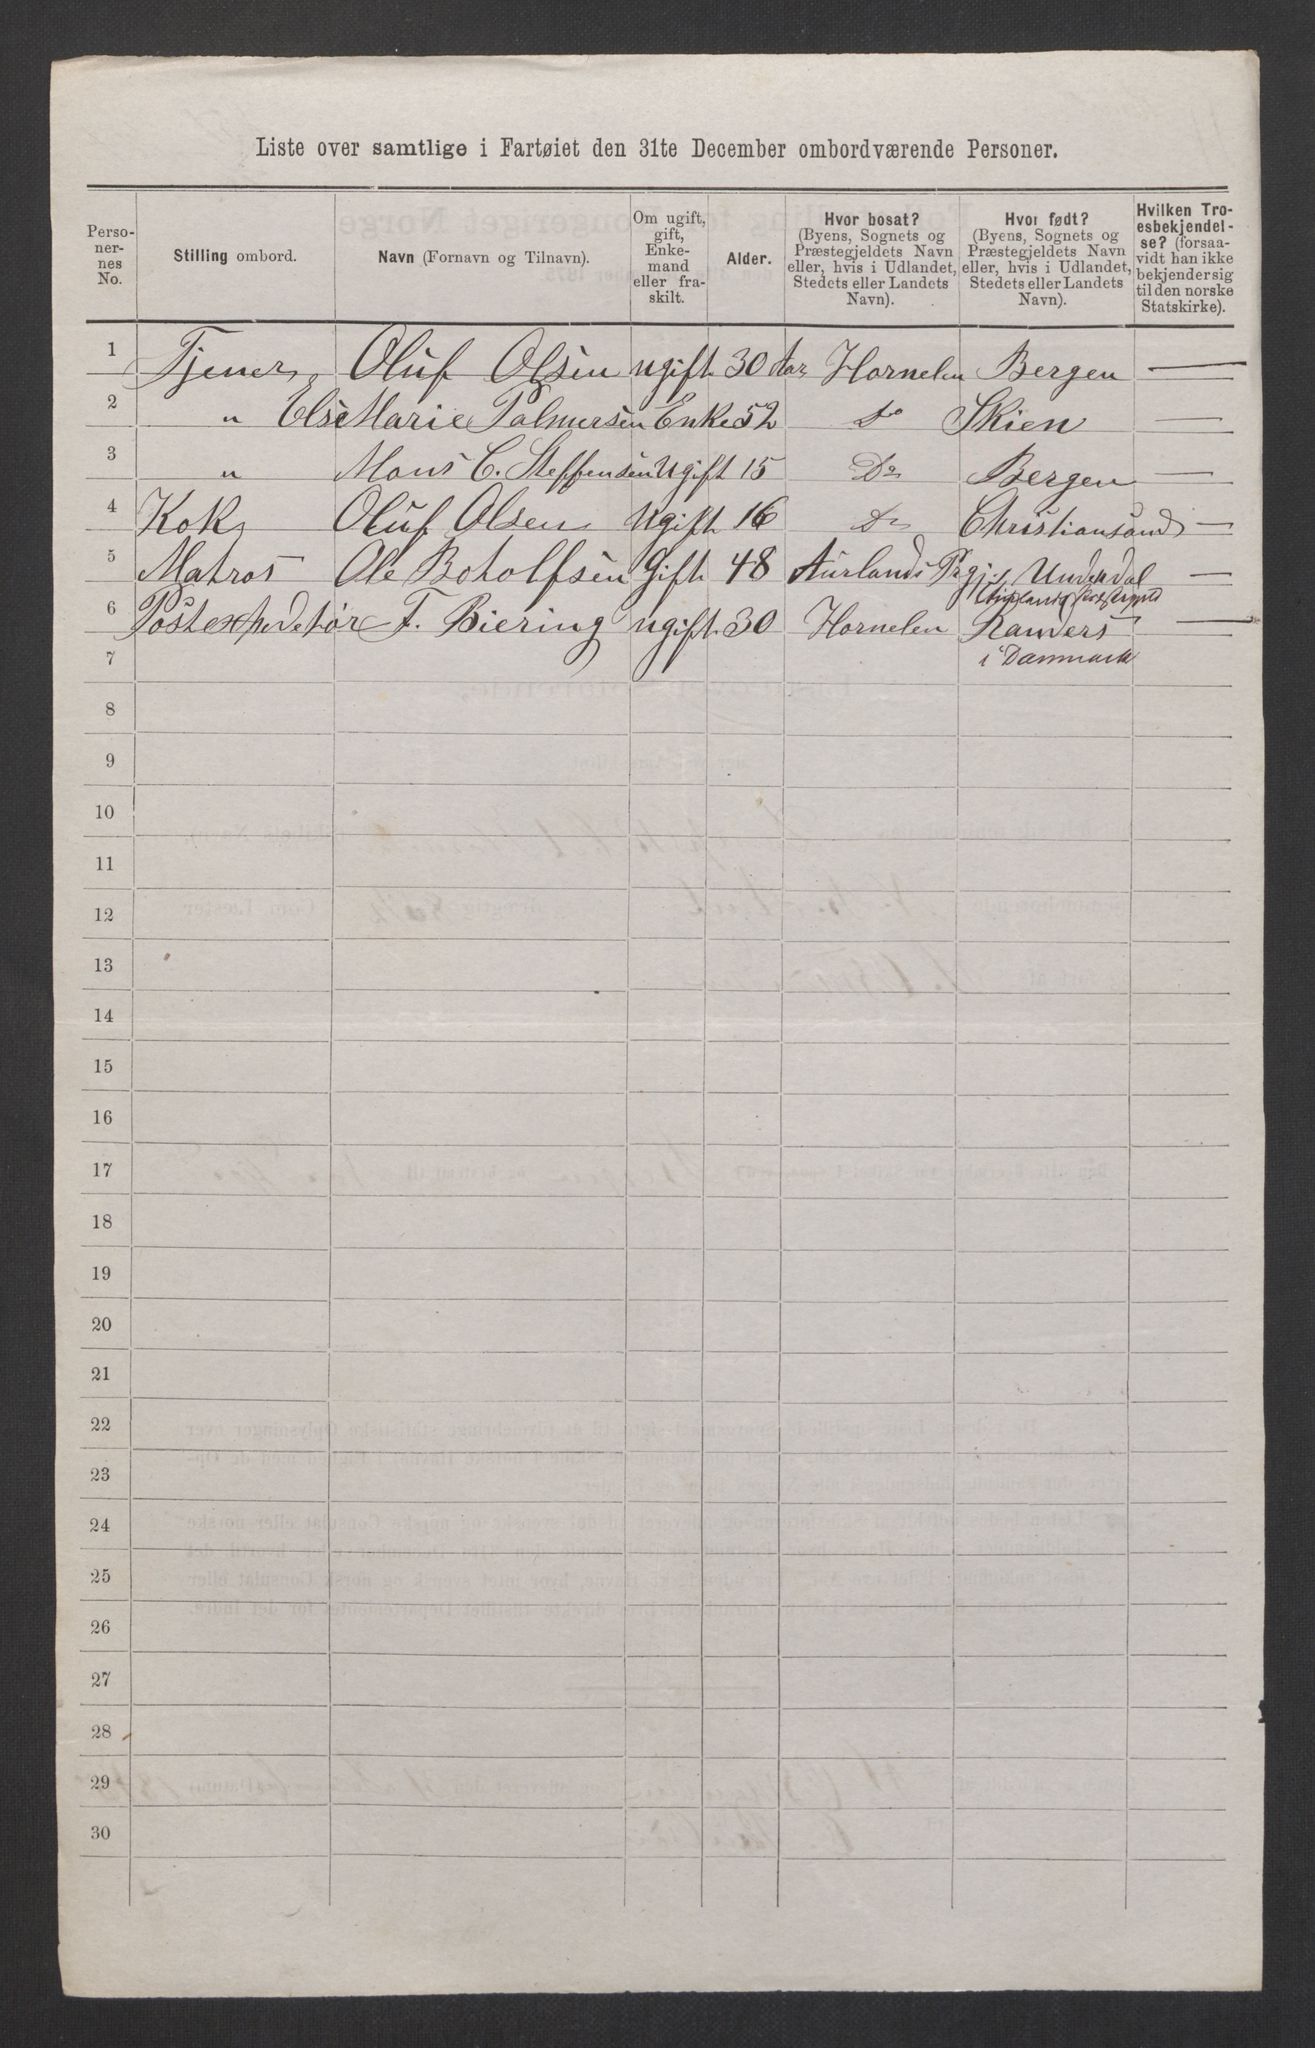 Liste over samtlige i Fartøiet den 31te December ombordværende Personer.
Perso-
ner-
nes
No.
Stilling ombord.
Navn (Fornavn og Tilnavn).
Om ugift,
gift,
Enke-
mand
eller fra-
skilt.
Alder.
Hvor bosat?
(Byens, Sognets og
Præstegjeldets Navn
eller, hvis i Udlandet,
Stedets eller Landets
Navn).
Hvor født?
(Byens, Sognets og
Præstegjeldets Navn
eller, hvis i Udlandet,
Stedets eller Landets
Navn).
Hvilken Tro-
esbekjendel-
se? (forsaa-
vidt han ikke
bekjender sig
til den norske
Statskirke).
1 Tjener Oluf Olsen ugift 30 Aar Hornelen Bergen —
2 " Else Marie Palmersen Enke 52 Do Skien —
3 " Mons C. Steffensen Ugift 15 Do Bergen —
4 Kok Oluf Olsen Ugift 16 Do Christiansand —
5 Matros Ole Botolfsen Gift 48 Aurlands Prgj. Underdal —
6 Postexpeditør F. Biering ugift 30 Hornelen Randers —
7 i Danmark
8
9
10
11
12
13
14
15
16
17
18
19
20
21
22
23
24
25
26
27
28
29
30